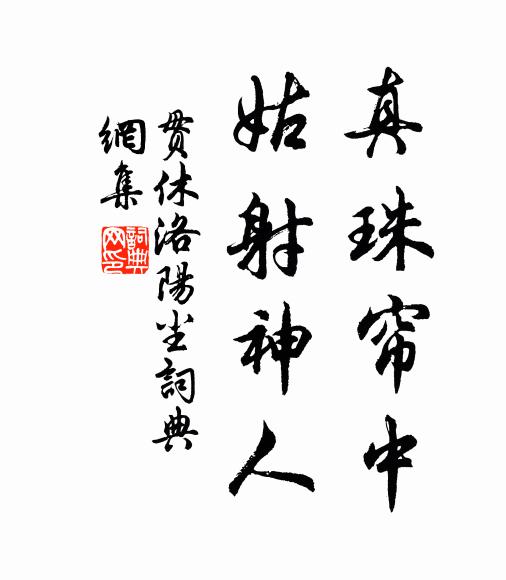 真珠帘中
姑射神人
贯休洛陽尘詞典
網集
詞典网印